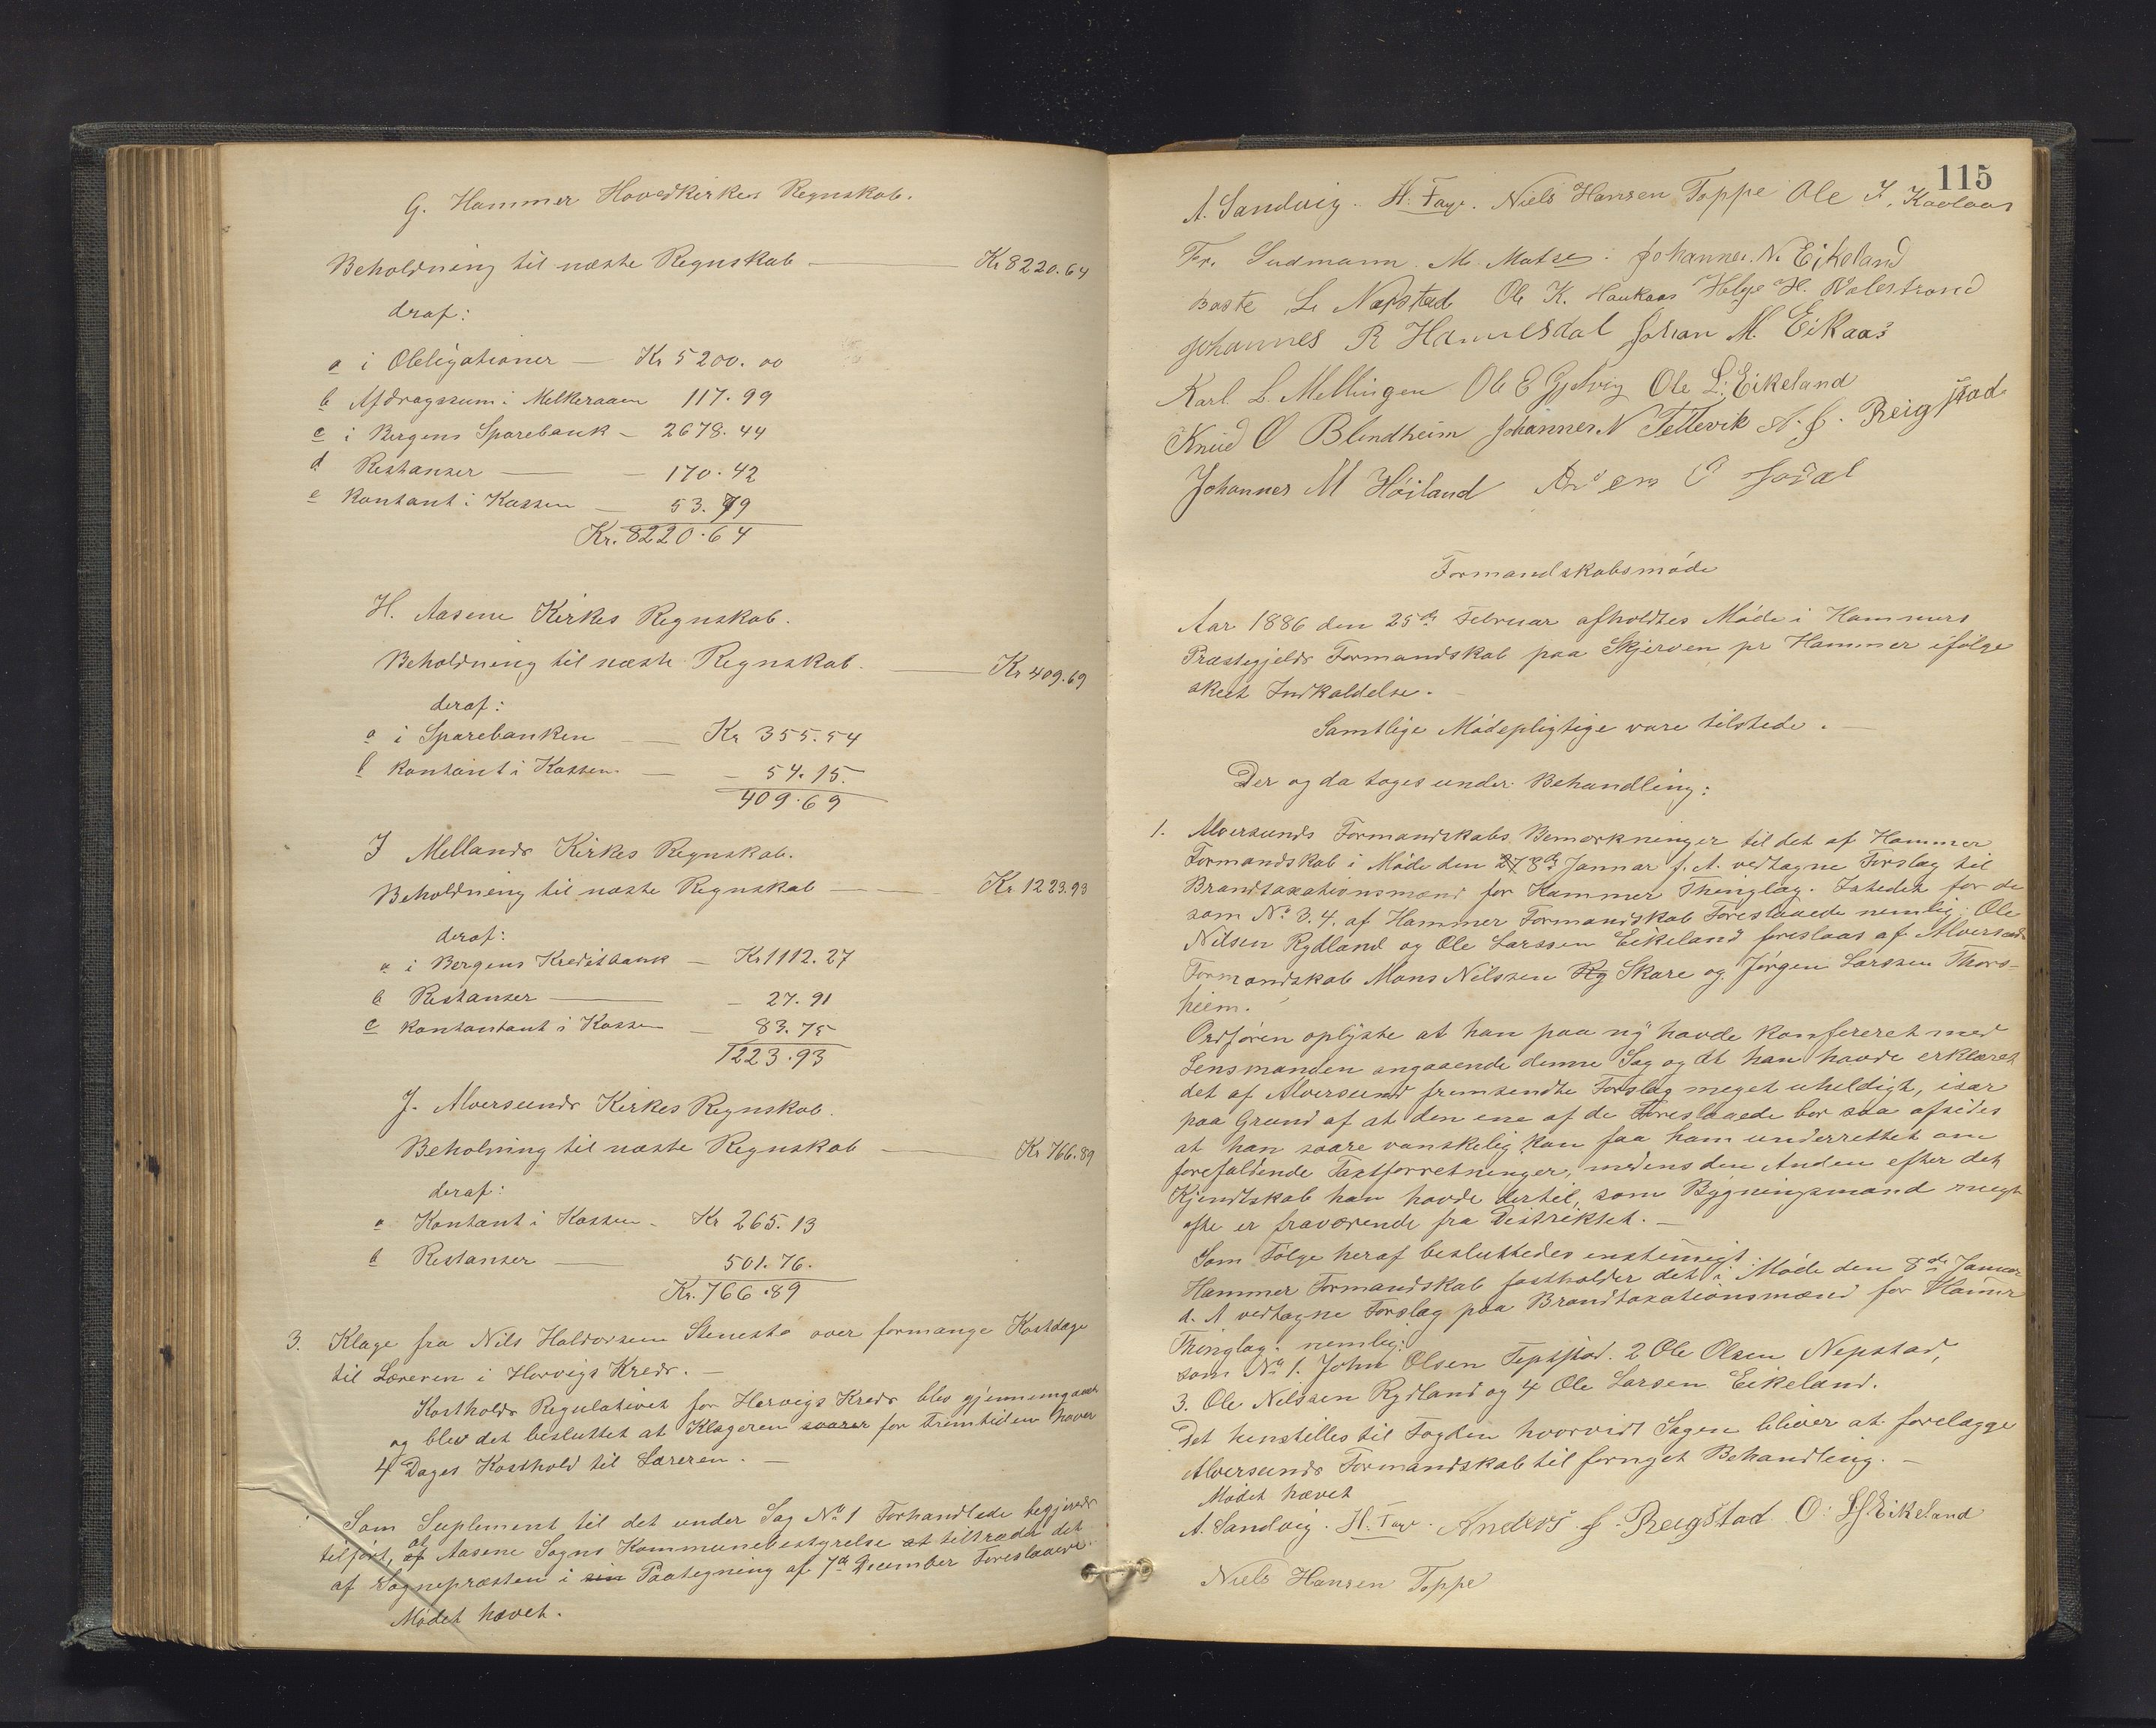 G. Hammer Hovedkirkes Regnskab.
Beholdning til næste Regnskab — Kr 8220.64
draf:
a i Obligationer — Kr 5200.00
b Afdragssum i Melkeraaen 117.99
c i Bergens Sparebank - 2678.44
d Restanser — - 170.42
e Kontant i Kassen - 53.79
Kr. 8220.64
H. Aasene Kirkes Regnskab.
Beholdning til næste Regnskab. — Kr 409.69
deraf:
a i Sparebanken — Kr 355.54
b Kontant i Kassen — - 54.15.
409.69
I Mellands Kirkes Regnskab.
Beholdning til næste Regnskab — Kr. 1223.93
deraf:
a i Bergens Kreditbank — Kr 1112.27
b Restanser — - 27.91
c Kontantant i Kassen - 83.75
1223.93
J. Alversunds Kirkes Regnskab.
Beholning til næste Regnskab — Kr 766.89
deraf:
a Kontant i Kassen - Kr 265.13
b Restanser — 501.76.
Kr. 766.89
3. Klage fra Nils Haldorsen Stenestø over formange Kostdage
til Læreren i Horvigs Kreds. —
Kostholds Regulativet for Hervigs Kreds blev gjennemgaaet
og blev det besluttet at Klageren svarer for Fremtiden haver
4 Dages Kosthold til Læreren. —
Som Suplement til det under Sag No 1 Forhandlede begjæredes
tilført, at af Aasene Sogns Kommunebestyrelse at tiltræder det
af Sognepræsten i sin Paategning af 7de December Foreslaaede.
Mødet hævet.
115
A. Sandvig. H. Faye. Niels Hansen Toppe Ole I. Kaalaas
Fr. Sudmann. M. Matre. Johannes N. Eikeland
Baste L. Nepstad Ole K. Haukaas Helge H. Valestrand
Johannes R Hamelsdal Johan M. Eikaas
Karl L. Mellingen Ole E Gjelvig Ole L. Eikeland
Knud O Blindheim Johannes N Tellevik A. J. Reigstad
Johannes M Høiland
Formandskabsmøde
Aar 1886 den 25de Februar afholdtes Møde i Hammers
Præstegjelds Formandskab paa Skjerven pr Hammer ifølge
skeet Indkaldelse. —
Samtlige Mødepligtige vare tilstede. —
Der og da toges under Behandling:
1. Alversunds Formandskabs Bemærkninger til det af Hammer
Formandskab i Møde den 8de Januar f. A. vedtagne Forslag til
Brandtaxationsmænd for Hammer Thinglag. Istedet for de
som No 3. 4. af Hammer Formandskab Foreslaaede nemlig: Ole
Nilsen Rydland og Ole Larssen Eikeland foreslaas af Alversunds
Formandskab Mons Nilssen Ry Skare og Jørgen Larssen Thors-
heim.
Ordføren oplyste at han paa ny havde konfereret med
Lensmanden angaaende denne Sag og at han havde erklæret
det af Alversund fremsendte Forslag meget uheldigt, især
paa Grund af at den ene af de Foreslaaede bor saa afsides
at han saare vanskelig kan faa ham underrettet om
forefaldende Taxtforretninger, medens den Anden efter det
Kjendskab han havde dertil, som Bygningsmand meget
ofte er fraværende fra Distriktet. —
Som Følge heraf besluttedes enstemigt:
Hammer Formandskab fastholder det i Møde den 8de Januar
d. A vedtagne Forslag paa Brandtaxationsmænd for Hammer
Thinglag. nemlig:
som No 1. John Olsen Tepstad. 2 Ole Olsen Nepstad,
3. Ole Nilssen Rydland og 4 Ole Larsen Eikeland.
Det henstilles til Fogden hvorvidt Sagen bliver at forelægge
Alversunds Formandskab til fornyet Behandling. —
Mødet hævet
A. Sandvig. H. Faye. Anders J. Reigstad O. L. Eikeland
Niels Hansen Toppe